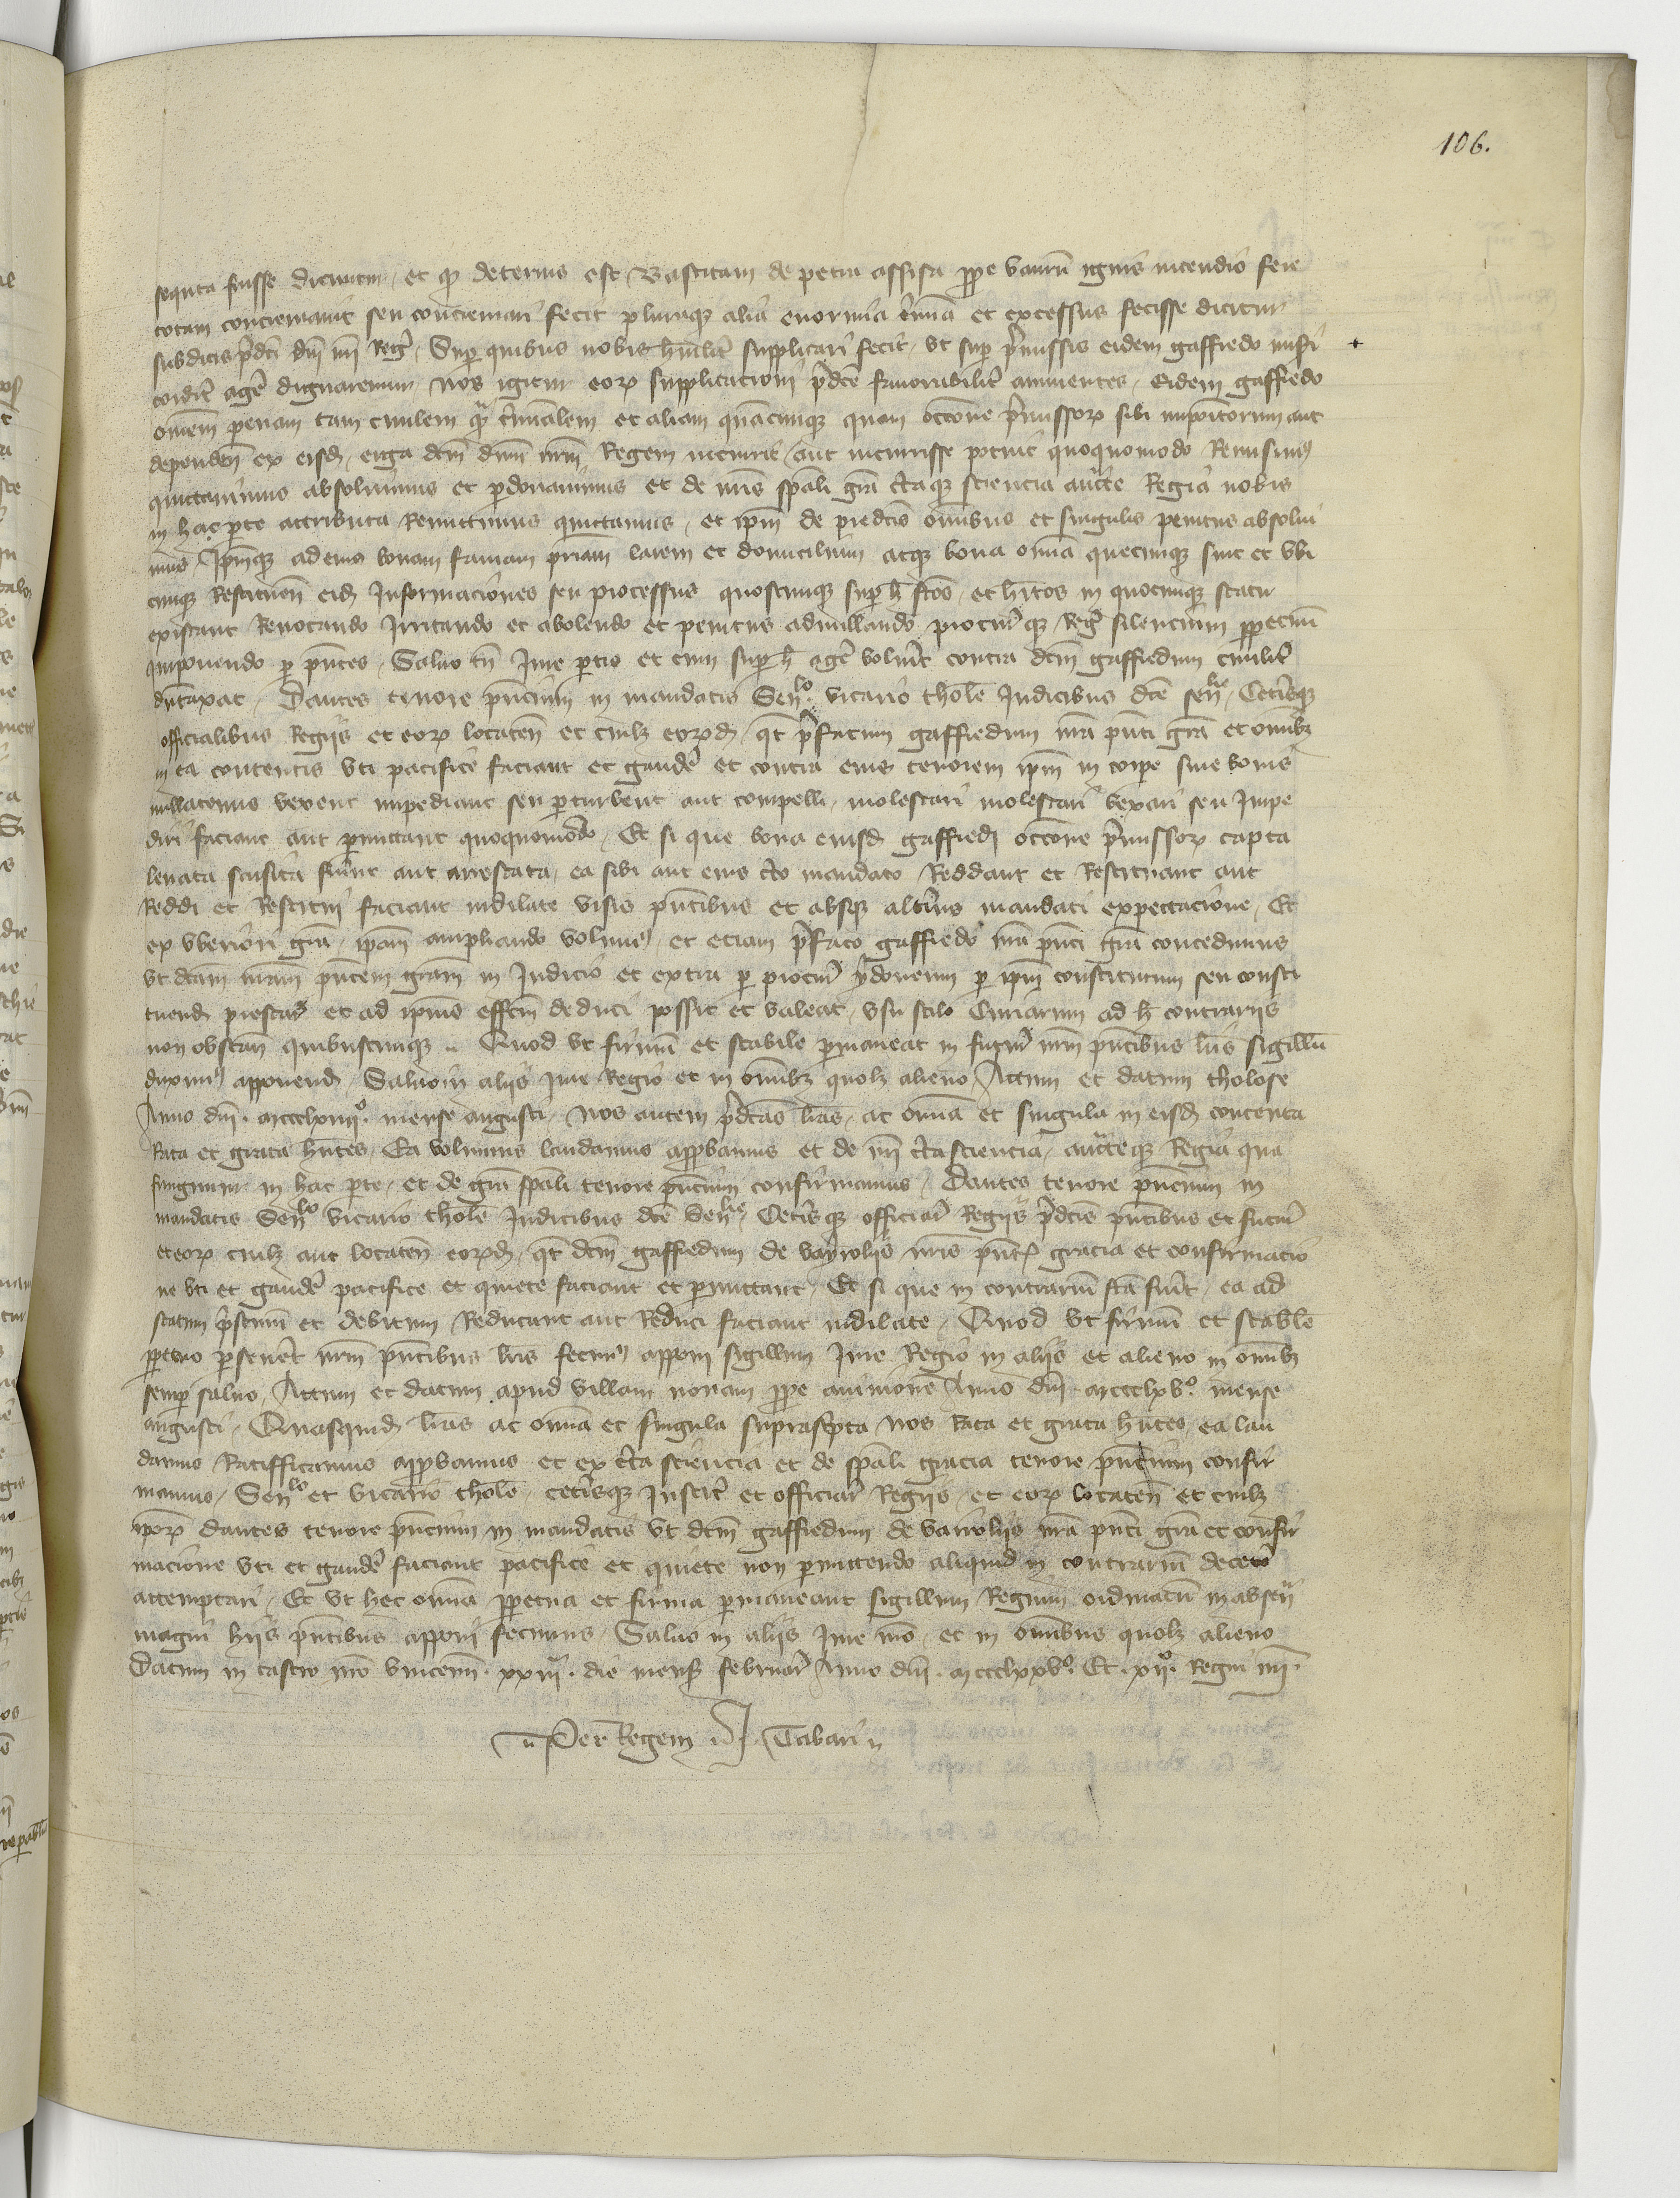 106.
sequta fuisse dicuntur, et qd deterius est, Bastitam de petra assisa prope vaurū ignis incendio fere
totam concremavit seu concremari fecit pluraque alia enormia crimīa et excessus fecisse dicitur
subditis p̄dcī dn̄i nr̄i Regis, Super quibus nobis humilit̄ supplicari fecit, ut sup p̄missis eidem gaffredo miseri
cordit̄ agē dignaremur, nos igitur eorum supplicationi p̄dcē favorabilit̄ annuentes, eidem gaffredo
omēm penam tam civilem qm̄ crimīalem et aliam quācunque quam occōne p̄missorum sibi impōitorum aut
dependen̄ ex eisd, erga dcm̄ dn̄m nrm̄ Regem incurrit aut incurrisse potuit quoquomodo Remisimus
quittavimus absolvimus et perdonavimus et de nr̄is spāli grā c̄taque sciencia auct̄te Regia nobis
in hac parte attributa Remittimus quittamus, et ipm̄ de predcīs omībus et singulis penitus absolvi
mus, Ipmque ad eius bonam famam pr̄iam larem et domicilium atque bona omīa quecunque sint et ubi
cunque Restituen̄ eid, Informaciones seu processus quoscunque super h̄ fcōs, et hītos in quocunque statu
existant Revocando Irritando et abolendo et penitus adnullando, procur̄ique Reḡ silencium perpetuū
imponendo per pn̄tes, Salvo tn̄ Iure partis et cum super h̄ agē voluīt contra dcm̄ gaffredum civilit̄
dūtaxat, Dantes tenore pn̄cium in mandatis Senlo vicario thole Iudicibus dcē senlie, Cetisque
officialibus Regiis et eorum locaten̄ et cuilibet eorumd, qt̄ p̄fatum gaffredum nr̄a pn̄ti grā et omībus
in ea contentis uti pacifice faciant et gaudē et contra eius tenorem ipm̄ in corpe sive bonis
nullatenus vexent impediant seu perturbent aut compelli, molestari molestari vexari seu Impe
diri faciant aut permittant quoquomodo, Et si que bona eiusd gaffredi occōne p̄missorum capta
levata saisita fuerint aut arrestata, ea sibi aut eius c̄to mandato Reddant et Restituant aut
Reddi et Restitui faciant indilate visis pn̄tibus et absque altīus mandati expectacione, Et
ex uberiori grā, ipam ampliando volumus, et etiam p̄fato gaffredo nr̄a pn̄ti grā concedimus
ut dcām nr̄am pn̄tem grām in Iudicio et extra per procur̄ ydoneum per ipm̄ constitutum seu consti
tuend prestar̄ et ad ipius effcm̄ deduci possit et valeat, usu stilo Curiarum ad h̄ contrariis
non obstan̄ quibuscunque .. Quod ut firmū et stabile permaneat in futur̄ nr̄m pn̄tibus lr̄is sigillū
duximus apponend, Salvo in aliis Iure Regio et in omībus quolibet alieno, Actum et datum tholose
Anno dn̄i . mccclxiiiio . mense augusti, nos autem p̄dcās lr̄as, ac omīa et singula in eisd contenta
Rata et grata hn̄tes, Ea volumus laudamus approbamus et de nr̄i c̄ta sciencia, auct̄teque Regia qua
fungimur in hac parte, et de grā spāli tenore pn̄cium confirmamus, Dantes tenore pn̄cium in
mandatis Senlo Vicario thole Iudicibus dcē Senlie, Cetisque officiar̄ Regiis p̄dcīs pn̄tibus et futur̄
et eorum cuilibet aut locaten̄ eorumd, qt̄ dcm̄ gaffredum de vayrolijs nr̄is pn̄t gracia et confirmacio
ne uti et gaudē pacifice et quiete faciant et permittant, Et si que in contrariū fcā fuīt, ea ad
statum p̄stinū et debitum Reducant aut Reduci faciant indilate, Quod ut firmū et stabile
perpetuo perseveret nr̄m pn̄tibus lr̄is fecimus apponi sigillum Iure Regio in aliis et alieno in omībus
semper salvo, Actum et datum apud villam novam prope avinionē Anno dn̄i . mccclxvo . mense
augusti, Quasquid lr̄as ac omīa et singula suprascripta nos Rata et grata hn̄tes, ea lau
damus Ratifficamus approbamus et ex c̄ta sciencia et de spāli gracia tenore pn̄cium confir
mamus, Senlo et vicario thole, cetisque Iustic̄ et officiar̄ Regiis, et eorum locaten̄ et cuilibet
ipōrum dantes tenore pn̄cium in mandatis ut dcm̄ gaffredum de vairolijs nr̄a pn̄ti grā et confir
macione uti et gaudē faciant pacifice et quiete non permittendo aliquid in contrariū decetō
attemptari, Et ut hec omīa perpetua et firma permaneant sigillum Regium ordinatū in absen̄
magni hiis pn̄tibus apponi fecimus, Salvo in aliis Iure nr̄o, et in omībus quolibet alieno
Datum in castro nr̄o vincenn̄ . xxiii . die mens̄ februar̄ Anno dn̄i . mccclxxvo . Et . xiio . Regni nr̄i .
Per Regem . J. Tabari